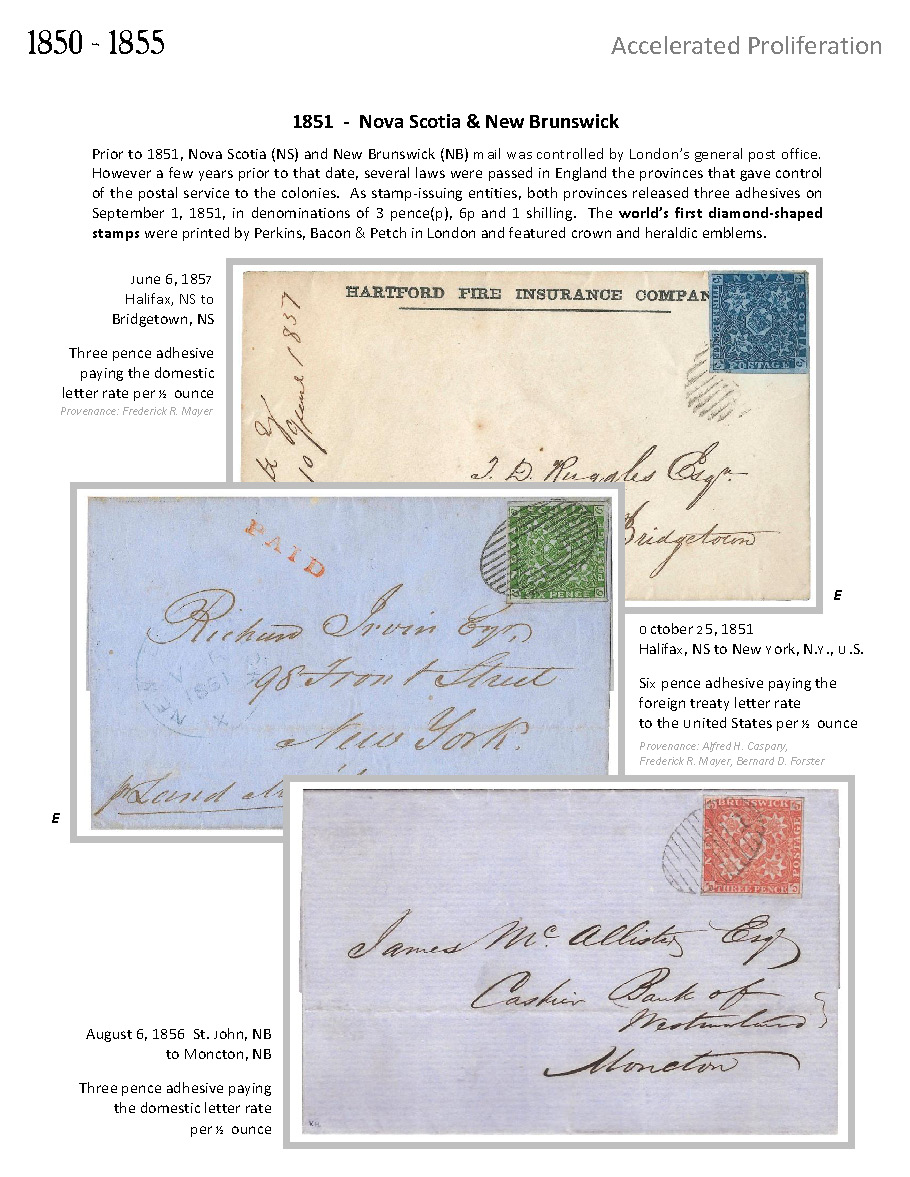 1850 - 1855
Accelerated Proliferation
1851 - Nova Scotia & New Brunswick
Prior to 1851, Nova Scotia (NS) and New Brunswick (NB) mail was controlled by London's general post office.
However a few years prior to that date, several laws were passed in England the provinces that gave control
of the postal service to the colonies. As stamp-issuing entities, both provinces released three adhesives on
September 1, 1851, in denominations of 3 pence(p), 6p and 1 shilling. The world's first diamond-shaped
stamps were printed by Perkins, Bacon & Petch in London and featured crown and heraldic emblems.
June 6, 1857
Halifax, NS to
Bridgetown, NS
Three pence adhesive
paying the domestic
letter rate per ½ ounce
Provenance: Frederick R. Mayer
HARTFORD FIRE INSURANCE COMPAN
NOVA
SCOTIA
POSTAGE
10 June 1857
J. D. Ruggles Esqr.
Bridgetown
E
PAID
SIX PENCE
Richard Irvin Esqr.
98 Front Street
New York.
1851
p Land
E
October 25, 1851
Halifax, NS to New York, N.Y., U.S.
Six pence adhesive paying the
foreign treaty letter rate
to the United States per ½ ounce
Provenance: Alfred H. Caspary,
Frederick R. Mayer, Bernard D. Forster
BRUNSWICK
POSTAGE
THREE PENCE
James McAllister Esq
Cashier Bank of
Westmorland
Moncton
August 6, 1856 St. John, NB
to Moncton, NB
Three pence adhesive paying
the domestic letter rate
per ½ ounce